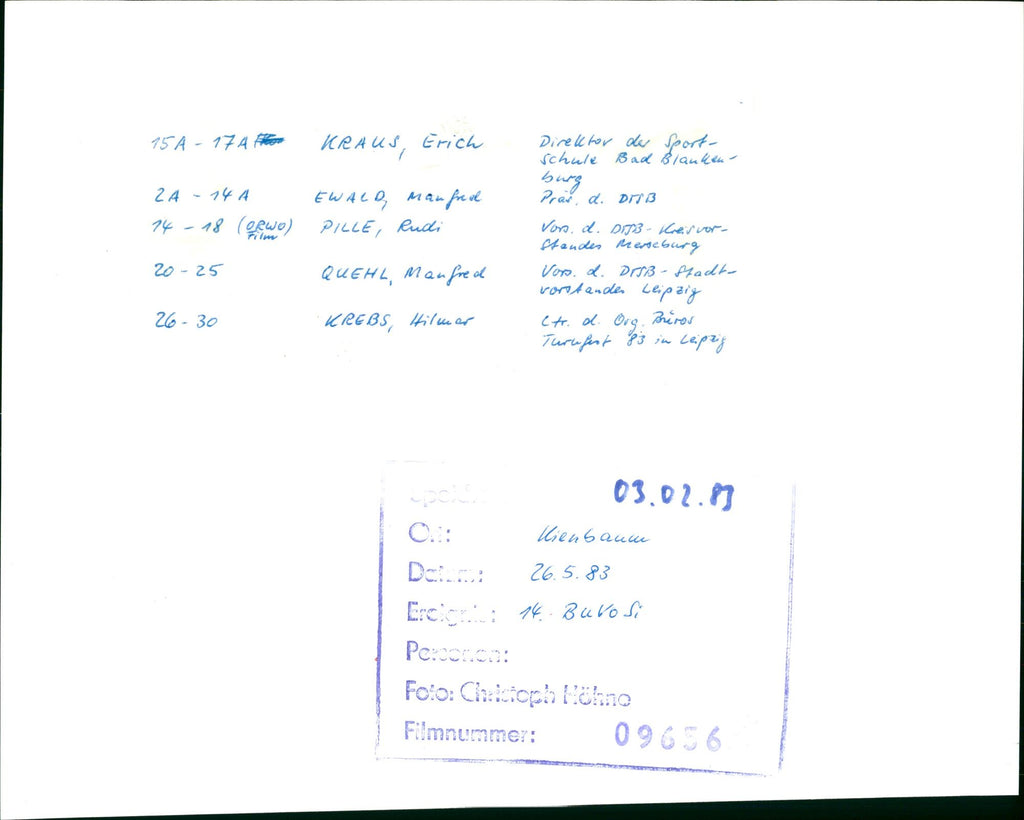 15A - 17A KRAUS, Erich Direktor der Sport-
schule Bad Blanken-
burg
2A - 14A EWALD, Manfred Präs. d. DTSB
14 - 18 (ORWO Film) PILLE, Rudi Vors. d. DTSB-Kreisvor-
standes Merseburg
20 - 25 QUEHL, Manfred Vors. d. DTSB-Stadt-
vorstandes Leipzig
26 - 30 KREBS, Hilmar Ltr. d. Org. Büros
Turnfest '83 in Leipzig
03.02.83
Ort: Kienbaum
Datum: 26.5.83
Ereignis: 14. BuVoSi
Personen:
Foto: Christoph Höhne
Filmnummer: 09656